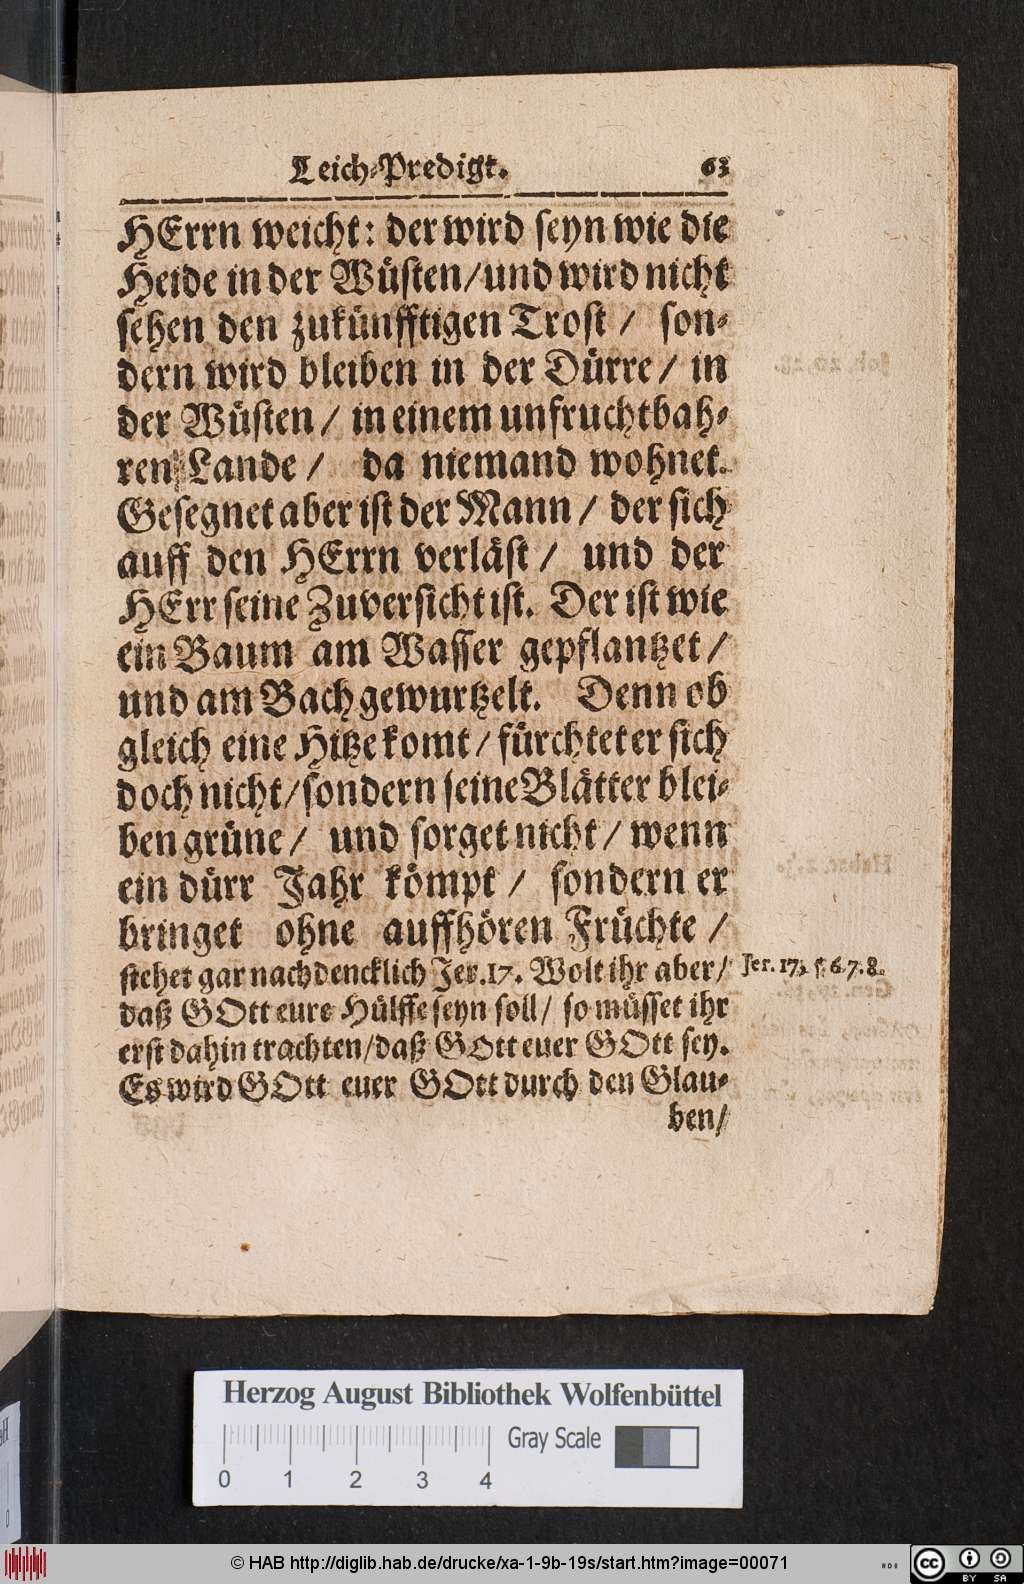 Leich-Predigt. 63
HErrn weicht: der wird seyn wie die
Heide in der Wüsten/ und wird nicht
sehen den zukünfftigen Trost/ son-
dern wird bleiben in der Dürre/ in
der Wüsten/ in einem unfruchtbah-
ren Lande/ da niemand wohnet.
Gesegnet aber ist der Mann/ der sich
auff den HErrn verläst/ und der
HErr seine Zuversicht ist. Der ist wie
ein Baum am Wasser gepflantzet/
und am Bach gewurtzelt. Denn ob
gleich eine Hitze komt/ fürchtet er sich
doch nicht/ sondern seine Blätter blei-
ben grüne/ und sorget nicht/ wenn
ein dürr Jahr kömpt/ sondern er
bringet ohne auffhören Früchte/
stehet gar nachdencklich Jer. 17. Wolt ihr aber/
Jer. 17, 5. 6. 7. 8.
daß GOtt eure Hülffe seyn soll/ so müsset ihr
erst dahin trachten/ daß GOtt euer GOtt sey.
Es wird GOtt euer GOtt durch den Glau-
ben/
Herzog August Bibliothek Wolfenbüttel
Gray Scale
0 1 2 3 4
© HAB http://diglib.hab.de/drucke/xa-1-9b-19s/start.htm?image=00071
cc BY SA